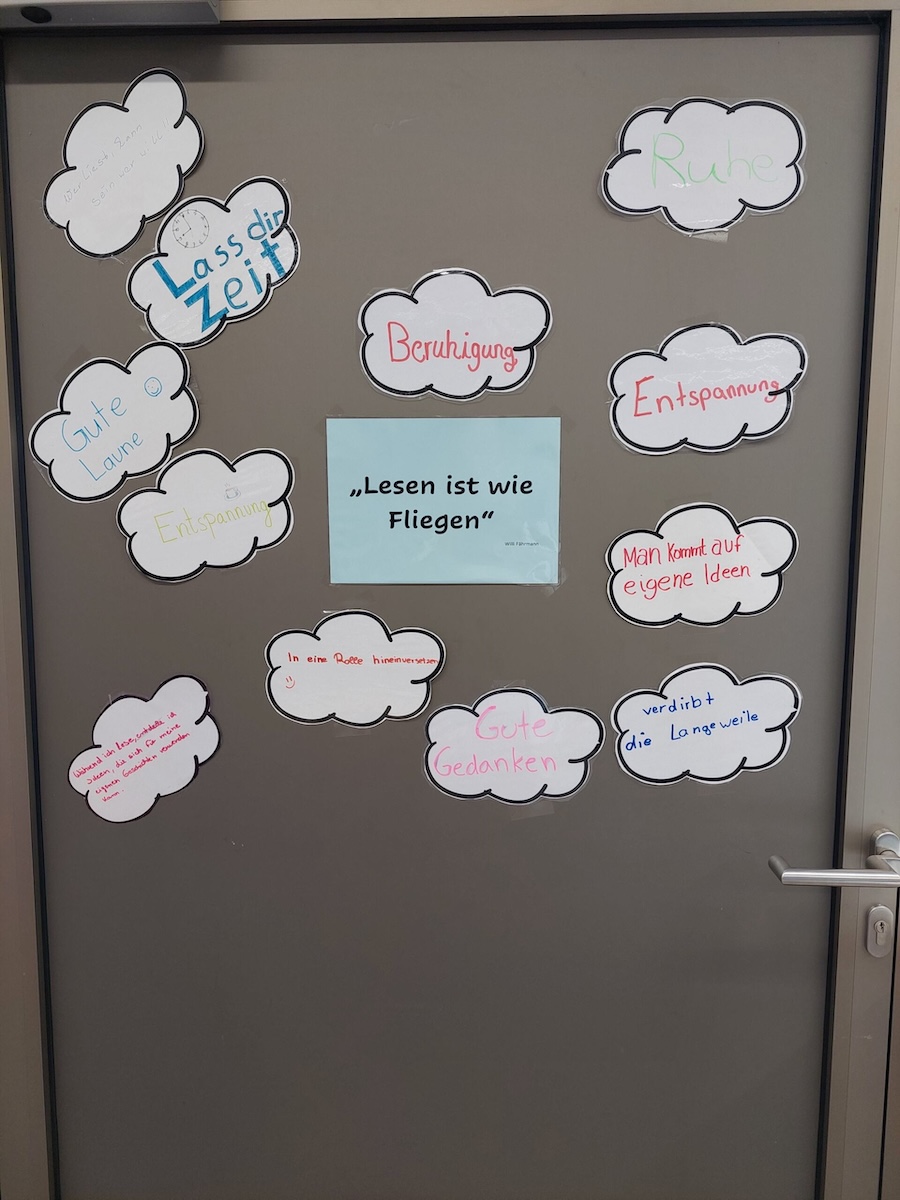 Wer liest, kann
sein wer will!
Lass dir
Zeit
Ruhe
Beruhigung
Entspannung
Gute
Laune
Entspannung
„Lesen ist wie
Fliegen“
Willi Fährmann
Man kommt auf
eigene Ideen
In eine Rolle hineinversetzen
Während ich lese, entstehen
Ideen, die ich für meine
eigenen Geschichten verwenden
kann.
Gute
Gedanken
verdirbt
die Langeweile